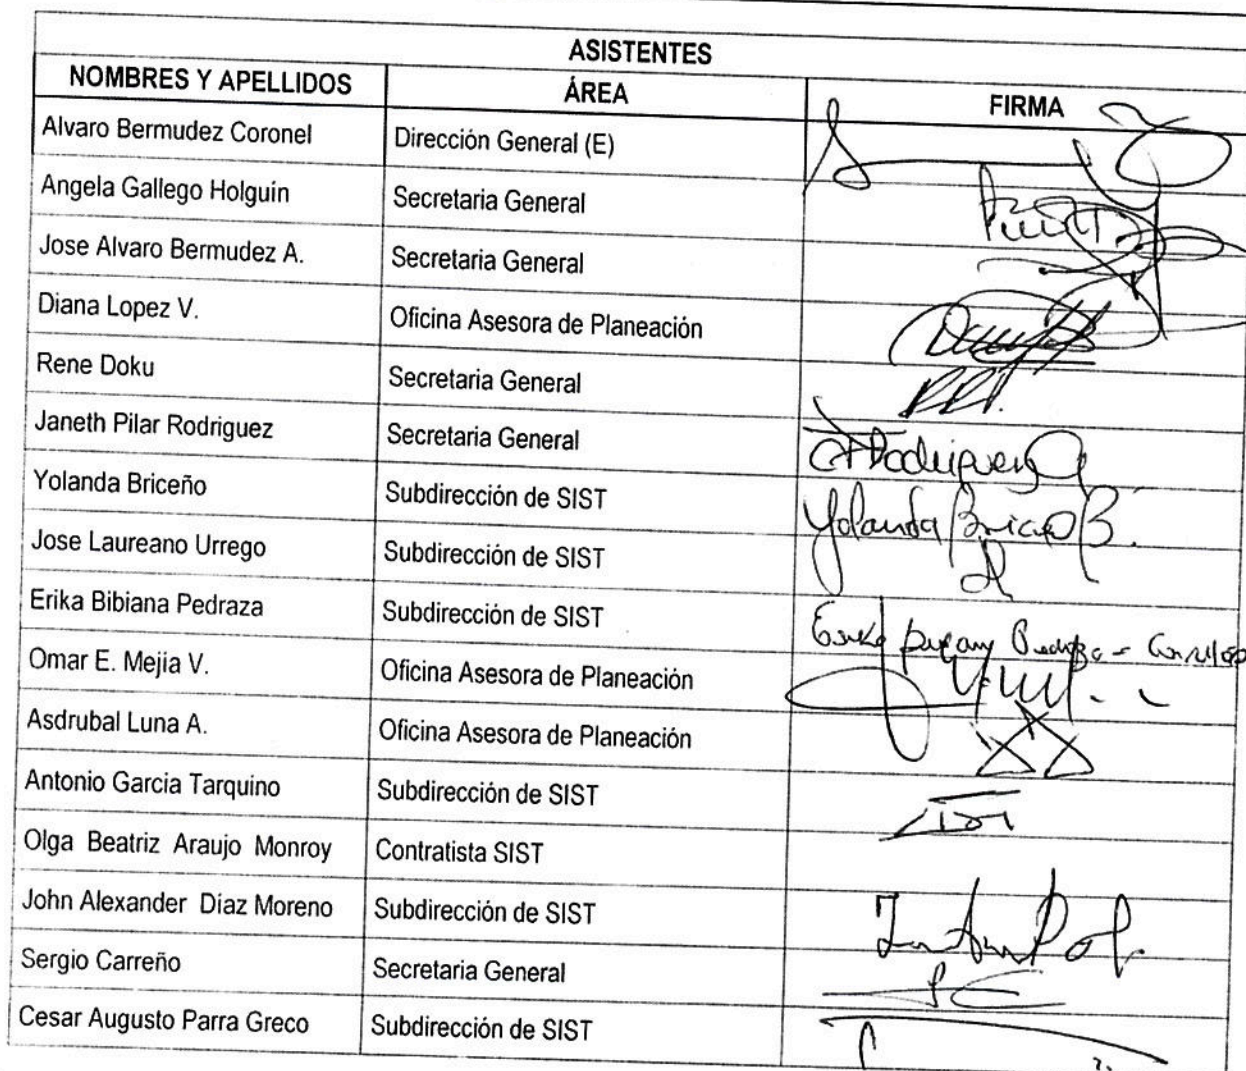 ASISTENTES
NOMBRES Y APELLIDOS ÁREA FIRMA
Alvaro Bermudez Coronel Dirección General (E)
Angela Gallego Holguin Secretaria General
Jose Alvaro Bermudez A. Secretaria General
Diana Lopez V. Oficina Asesora de Planeación
Rene Doku Secretaria General
Janeth Pilar Rodriguez Secretaria General
Yolanda Briceño Subdirección de SIST Yolanda Briceño B.
Jose Laureano Urrego Subdirección de SIST
Erika Bibiana Pedraza Subdirección de SIST
Omar E. Mejia V. Oficina Asesora de Planeación
Asdrubal Luna A. Oficina Asesora de Planeación
Antonio Garcia Tarquino Subdirección de SIST
Olga Beatriz Araujo Monroy Contratista SIST
John Alexander Diaz Moreno Subdirección de SIST
Sergio Carreño Secretaria General
Cesar Augusto Parra Greco Subdirección de SIST